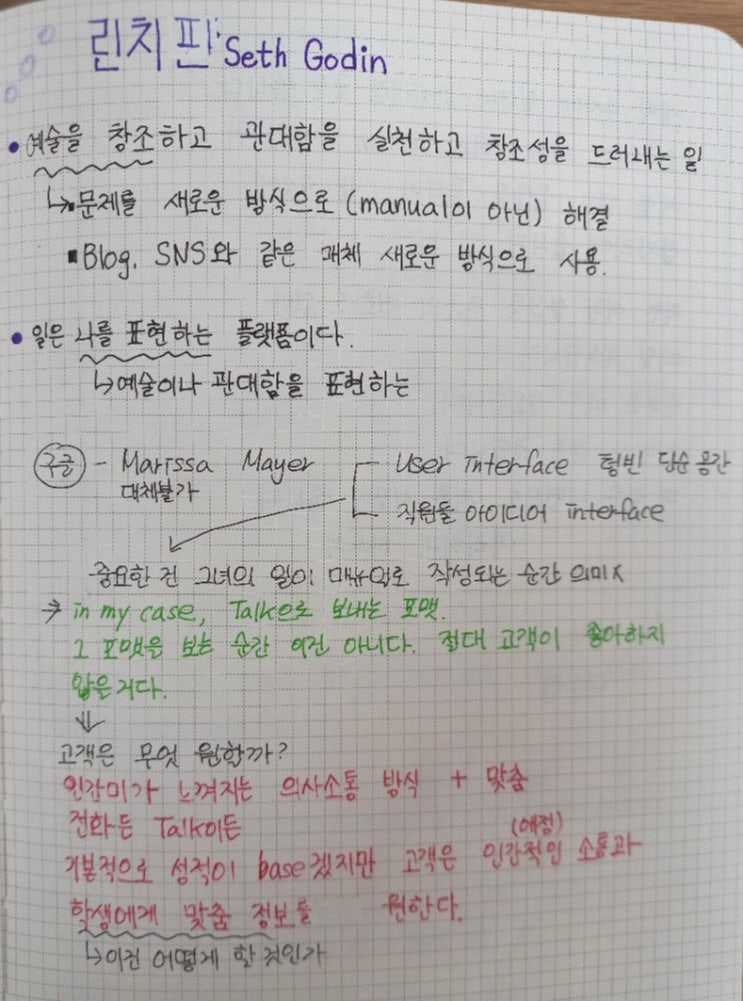 린치핀: Seth Godin
• 예술을 창조하고 관대함을 실천하고 창조성을 드러내는 일
↳▪문제를 새로운 방식으로 (manual이 아닌) 해결
▪Blog, SNS와 같은 매체 새로운 방식으로 사용.
• 일은 나를 표현하는 플랫폼이다.
↳예술이나 관대함을 표현하는
구글 - Marissa Mayer
대체불가
User Interface 텅빈 단순 공간
직원들 아이디어 interface
중요한 건 그녀의 일이 매뉴얼로 작성되는 순간 의미X
→ in my case, Talk으로 보내는 포맷.
그 포맷을 보는 순간 이건 아니다. 절대 고객이 좋아하지
않은거다.
⇓
고객은 무엇 원할까?
인간미가 느껴지는 의사소통 방식 + 맞춤
전화든 Talk이든
(애정)
기본적으로 성적이 base겠지만 고객은 인간적인 소통과
학생에게 맞춤 정보를 원한다.
↳이건 어떻게 할 것인가